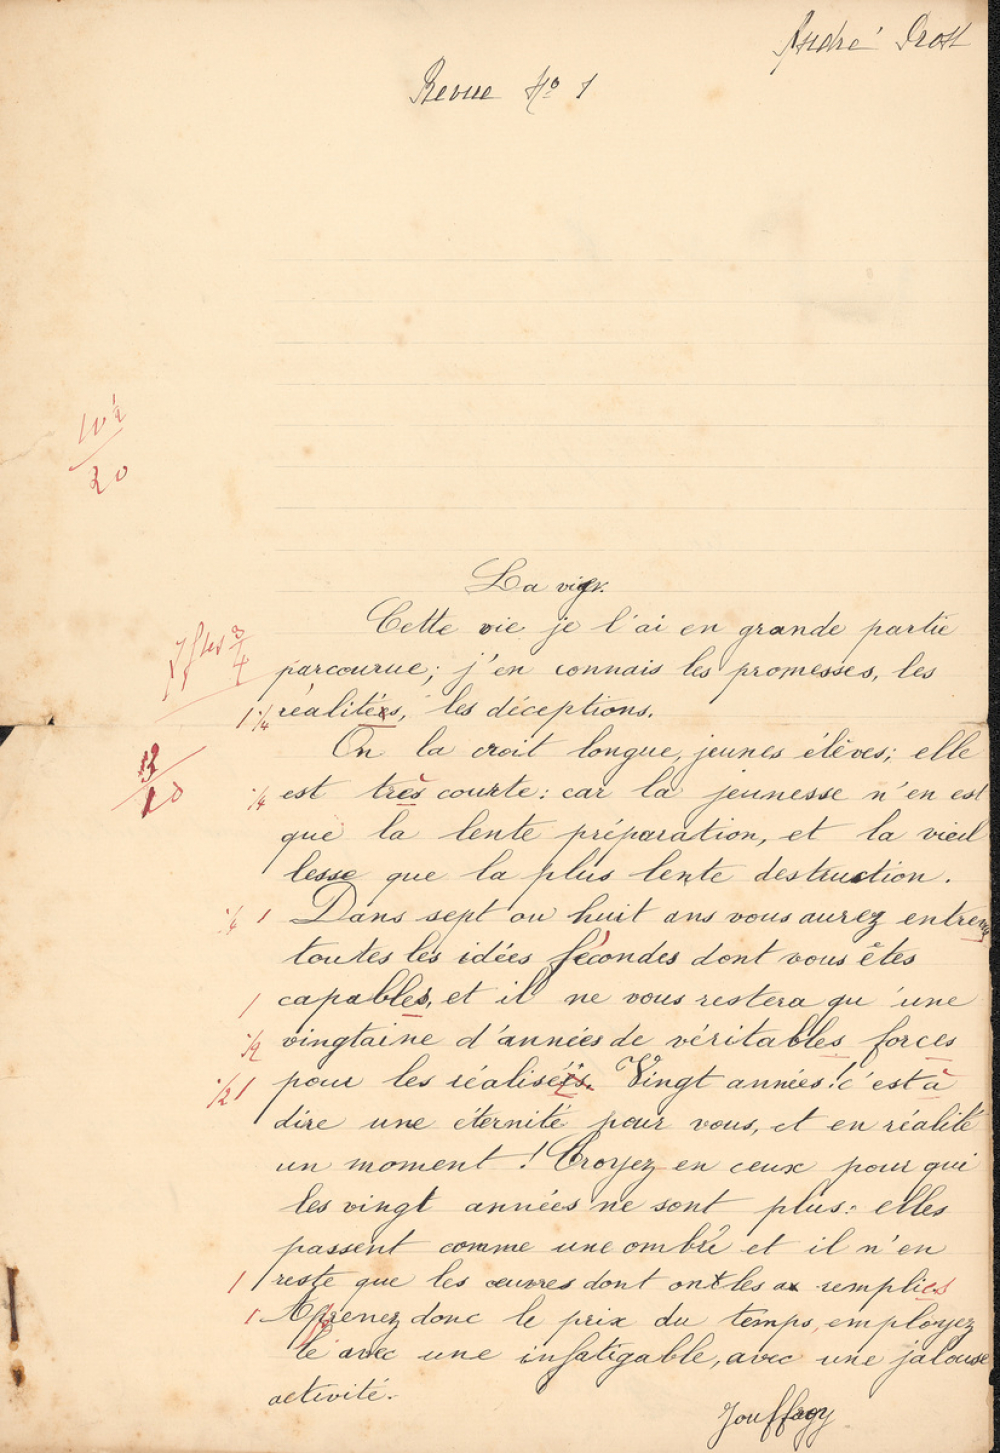 André Prost
Revue No 1
10 ½
20
La vie.
Cette vie je l'ai en grande partie
7 ftes 3/4
parcourue; j'en connais les promesses, les
1 ¼ réalités, les déceptions.
On la croit longue, jeunes élèves; elle
3
10
¼ est très courte: car la jeunesse n'en est
que la lente préparation, et la vieil
lesse que la plus lente destruction.
¼ 1 Dans sept ou huit ans vous aurez entrevu
toutes les idées fécondes dont vous êtes
1 capables, et il ne vous restera qu'une
½ vingtaine d'années de véritables forces
½ 1 pour les réaliser. Vingt années! c'est à
dire une éternité pour vous, et en réalité
un moment! Croyez en ceux pour qui
les vingt années ne sont plus: elles
passent comme une ombre et il n'en
1 reste que les œuvres dont on les a remplies
1 Apprenez donc le prix du temps, employez
le avec une infatigable, avec une jalouse
activité.
Jouffroy